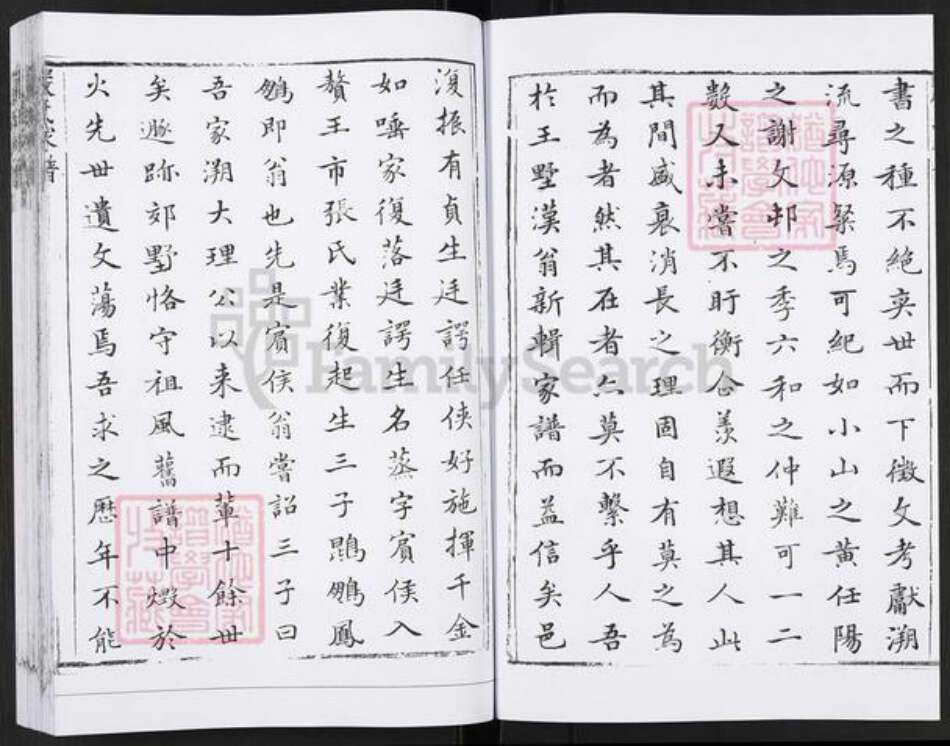 書之種不絕奕世而下徵文考獻溯
流尋源粲焉可紀如小山之黃任陽
之謝文邨之季六和之仲難可一二
數又未嘗不盱衡企羨遐想其人此
其間盛衰消長之理固自有莫之為
而為者然其在者亦莫不繫乎人吾
於王墅漢翁新輯家譜而益信矣邑
復振有貞生廷諤任俠好施揮千金
如唾家復落廷諤生名蒸字賓侯入
贅王市張氏業復起生三子鵾鶵鳳
鶵即翁也先是賓侯翁嘗詔三子曰
吾家溯大理公以來逮而輩十餘世
矣遯跡郊墅恪守祖風舊譜中燬於
火先世遺文蕩焉吾求之歷年不能
家譜
FamilySearch